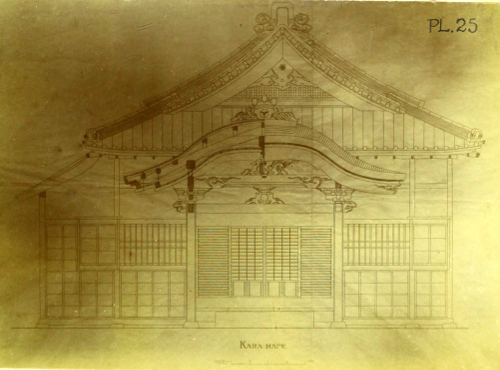 PL.25
KARA-HAFE